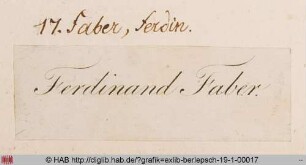 17. Faber, Ferdin.
Ferdinand Faber.
© HAB http://diglib.hab.de/?grafik=exlib-berlepsch-19-1-00017